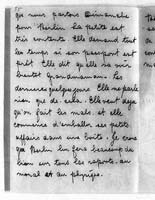 que nous partons Dimanche
pour Berlin la petite est
très contente. Elle demand tout
les temps si son passeport est
prêt Elle dit qu'elle va voir
bientôt Grandmaman. Les
dernièrs quelques jours Elle ne parle
rien que de cela. Elle veut déjà
qu'on fait les mals. et elle
commence d'emballer ses petits
affairs dans une boîte. Je crois
que Berlin lui fera beaucoup de
bien sur tous les raports. au
moral et au physique.